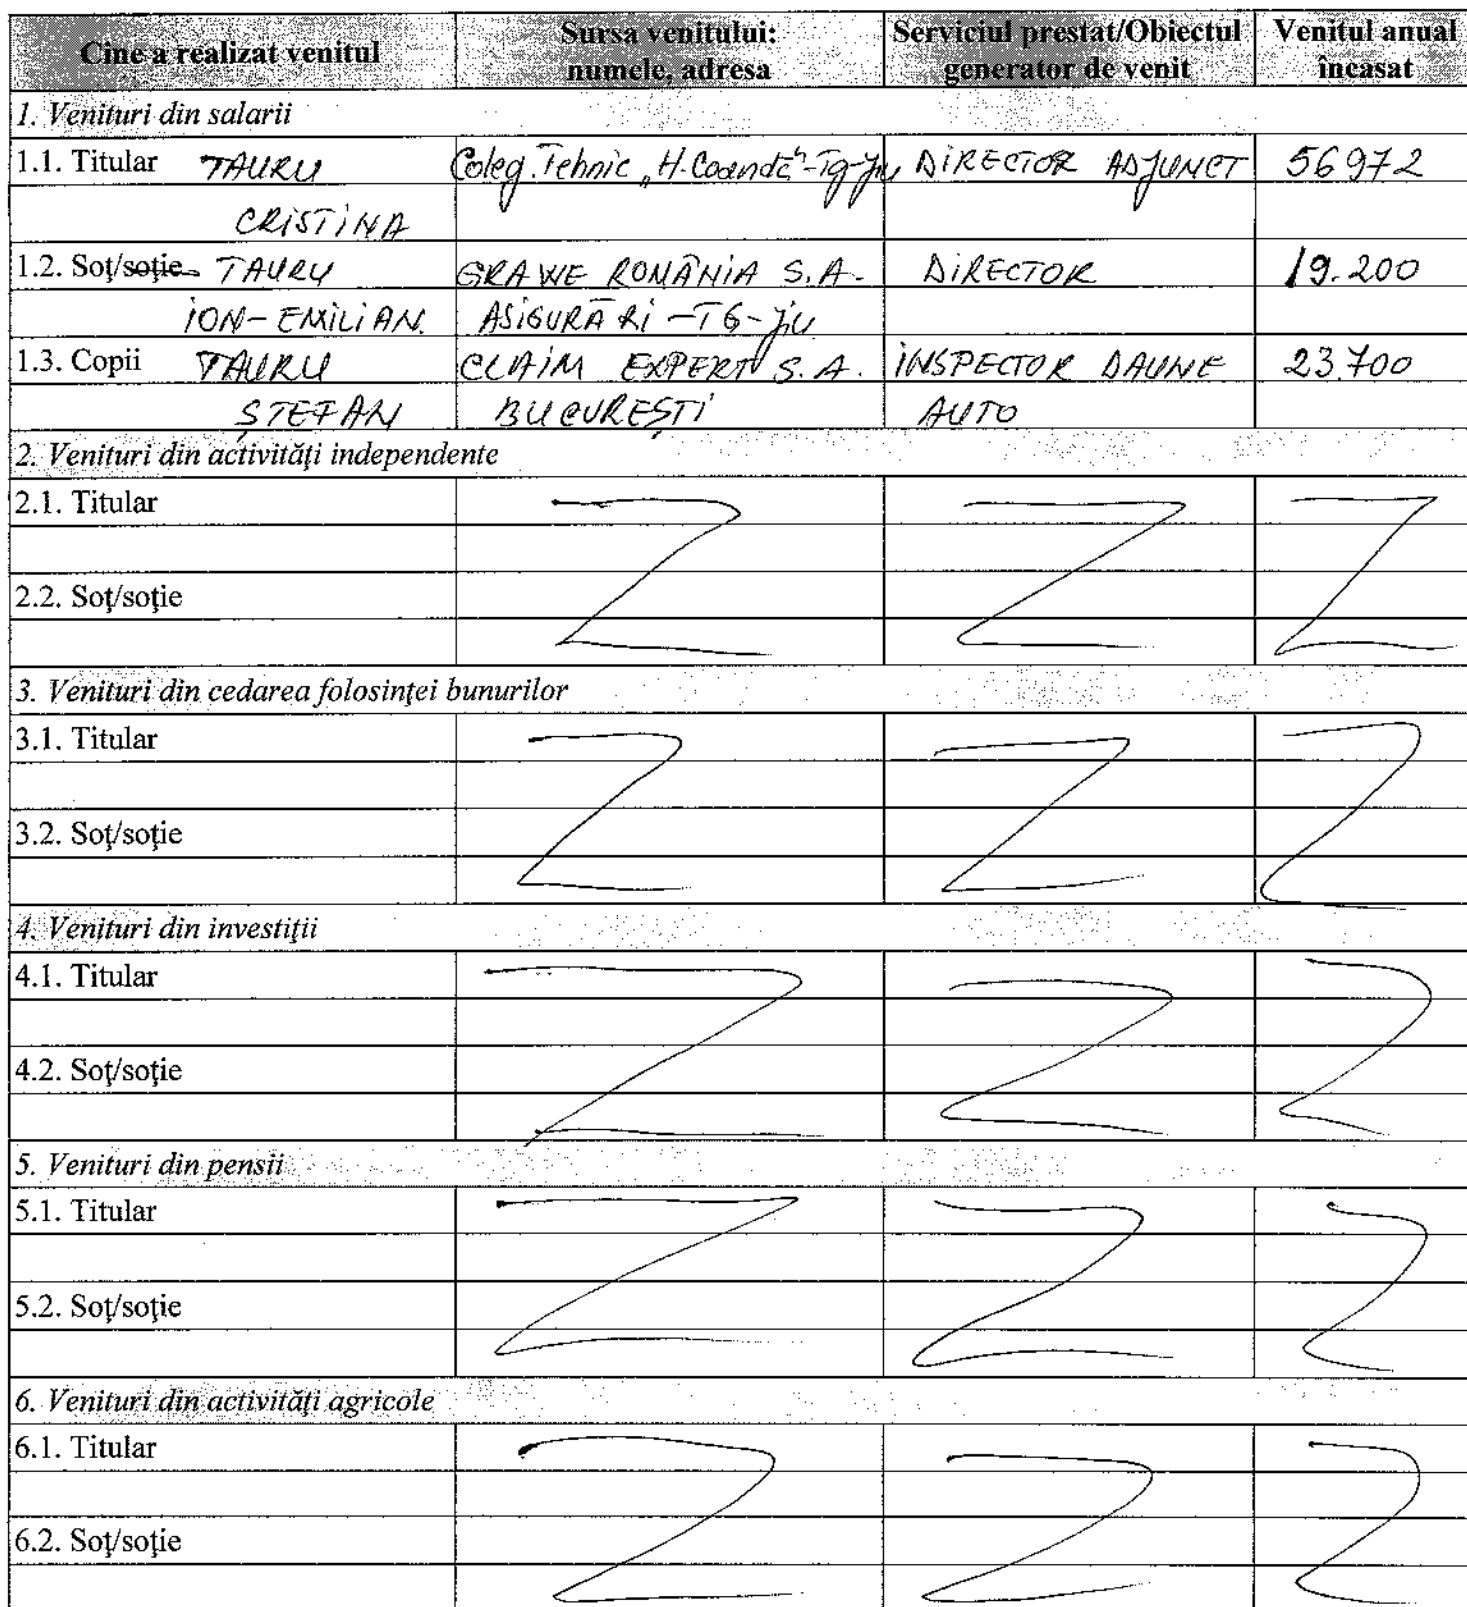 Cine a realizat venitul Sursa venitului: numele, adresa Serviciul prestat/Obiectul generator de venit Venitul anual încasat
1. Venituri din salarii
1.1. Titular TAURU Coleg. Tehnic „H. Coandă"-Tg-Jiu DIRECTOR ADJUNCT 56972
CRISTINA
1.2. Soţ/soţie TAURU GRAWE ROMÂNIA S.A. DIRECTOR 19.200
ION-EMILIAN ASIGURĂRI - TG-Jiu
1.3. Copii TAURU CLAIM EXPERT S.A. INSPECTOR DAUNE 23.700
ȘTEFAN BUCUREȘTI AUTO
2. Venituri din activităţi independente
2.1. Titular
2.2. Soţ/soţie
3. Venituri din cedarea folosinţei bunurilor
3.1. Titular
3.2. Soţ/soţie
4. Venituri din investiţii
4.1. Titular
4.2. Soţ/soţie
5. Venituri din pensii
5.1. Titular
5.2. Soţ/soţie
6. Venituri din activităţi agricole
6.1. Titular
6.2. Soţ/soţie